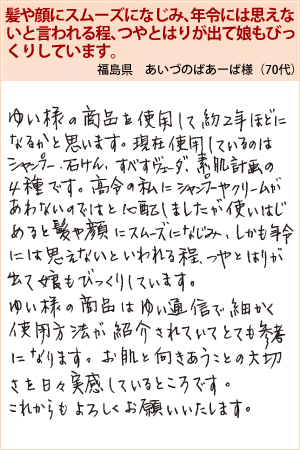 髪や顔にスムーズになじみ、年令には思えな
いと言われる程、つやとはりが出て娘もびっ
くりしています。
福島県　あいづのばあーば様（70代）
ゆい様の商品を使用して約2年ほどに
なるかと思います。現在使用しているのは
シャンプー、石けん、すべすヴェーダ、素肌計画の
4種です。高令の私にシャンプーやクリームが
あわないのではと心配しましたが使いはじ
めると髪や顔にスムーズになじみ、しかも年令
には思えないといわれる程、つやとはりが
出て娘もびっくりしています。
ゆい様の商品はゆい通信で細かく
使用方法が紹介されていてとても参考
になります。お肌と向きあうことの大切
さを日々実感しているところです。
これからもよろしくお願いいたします。